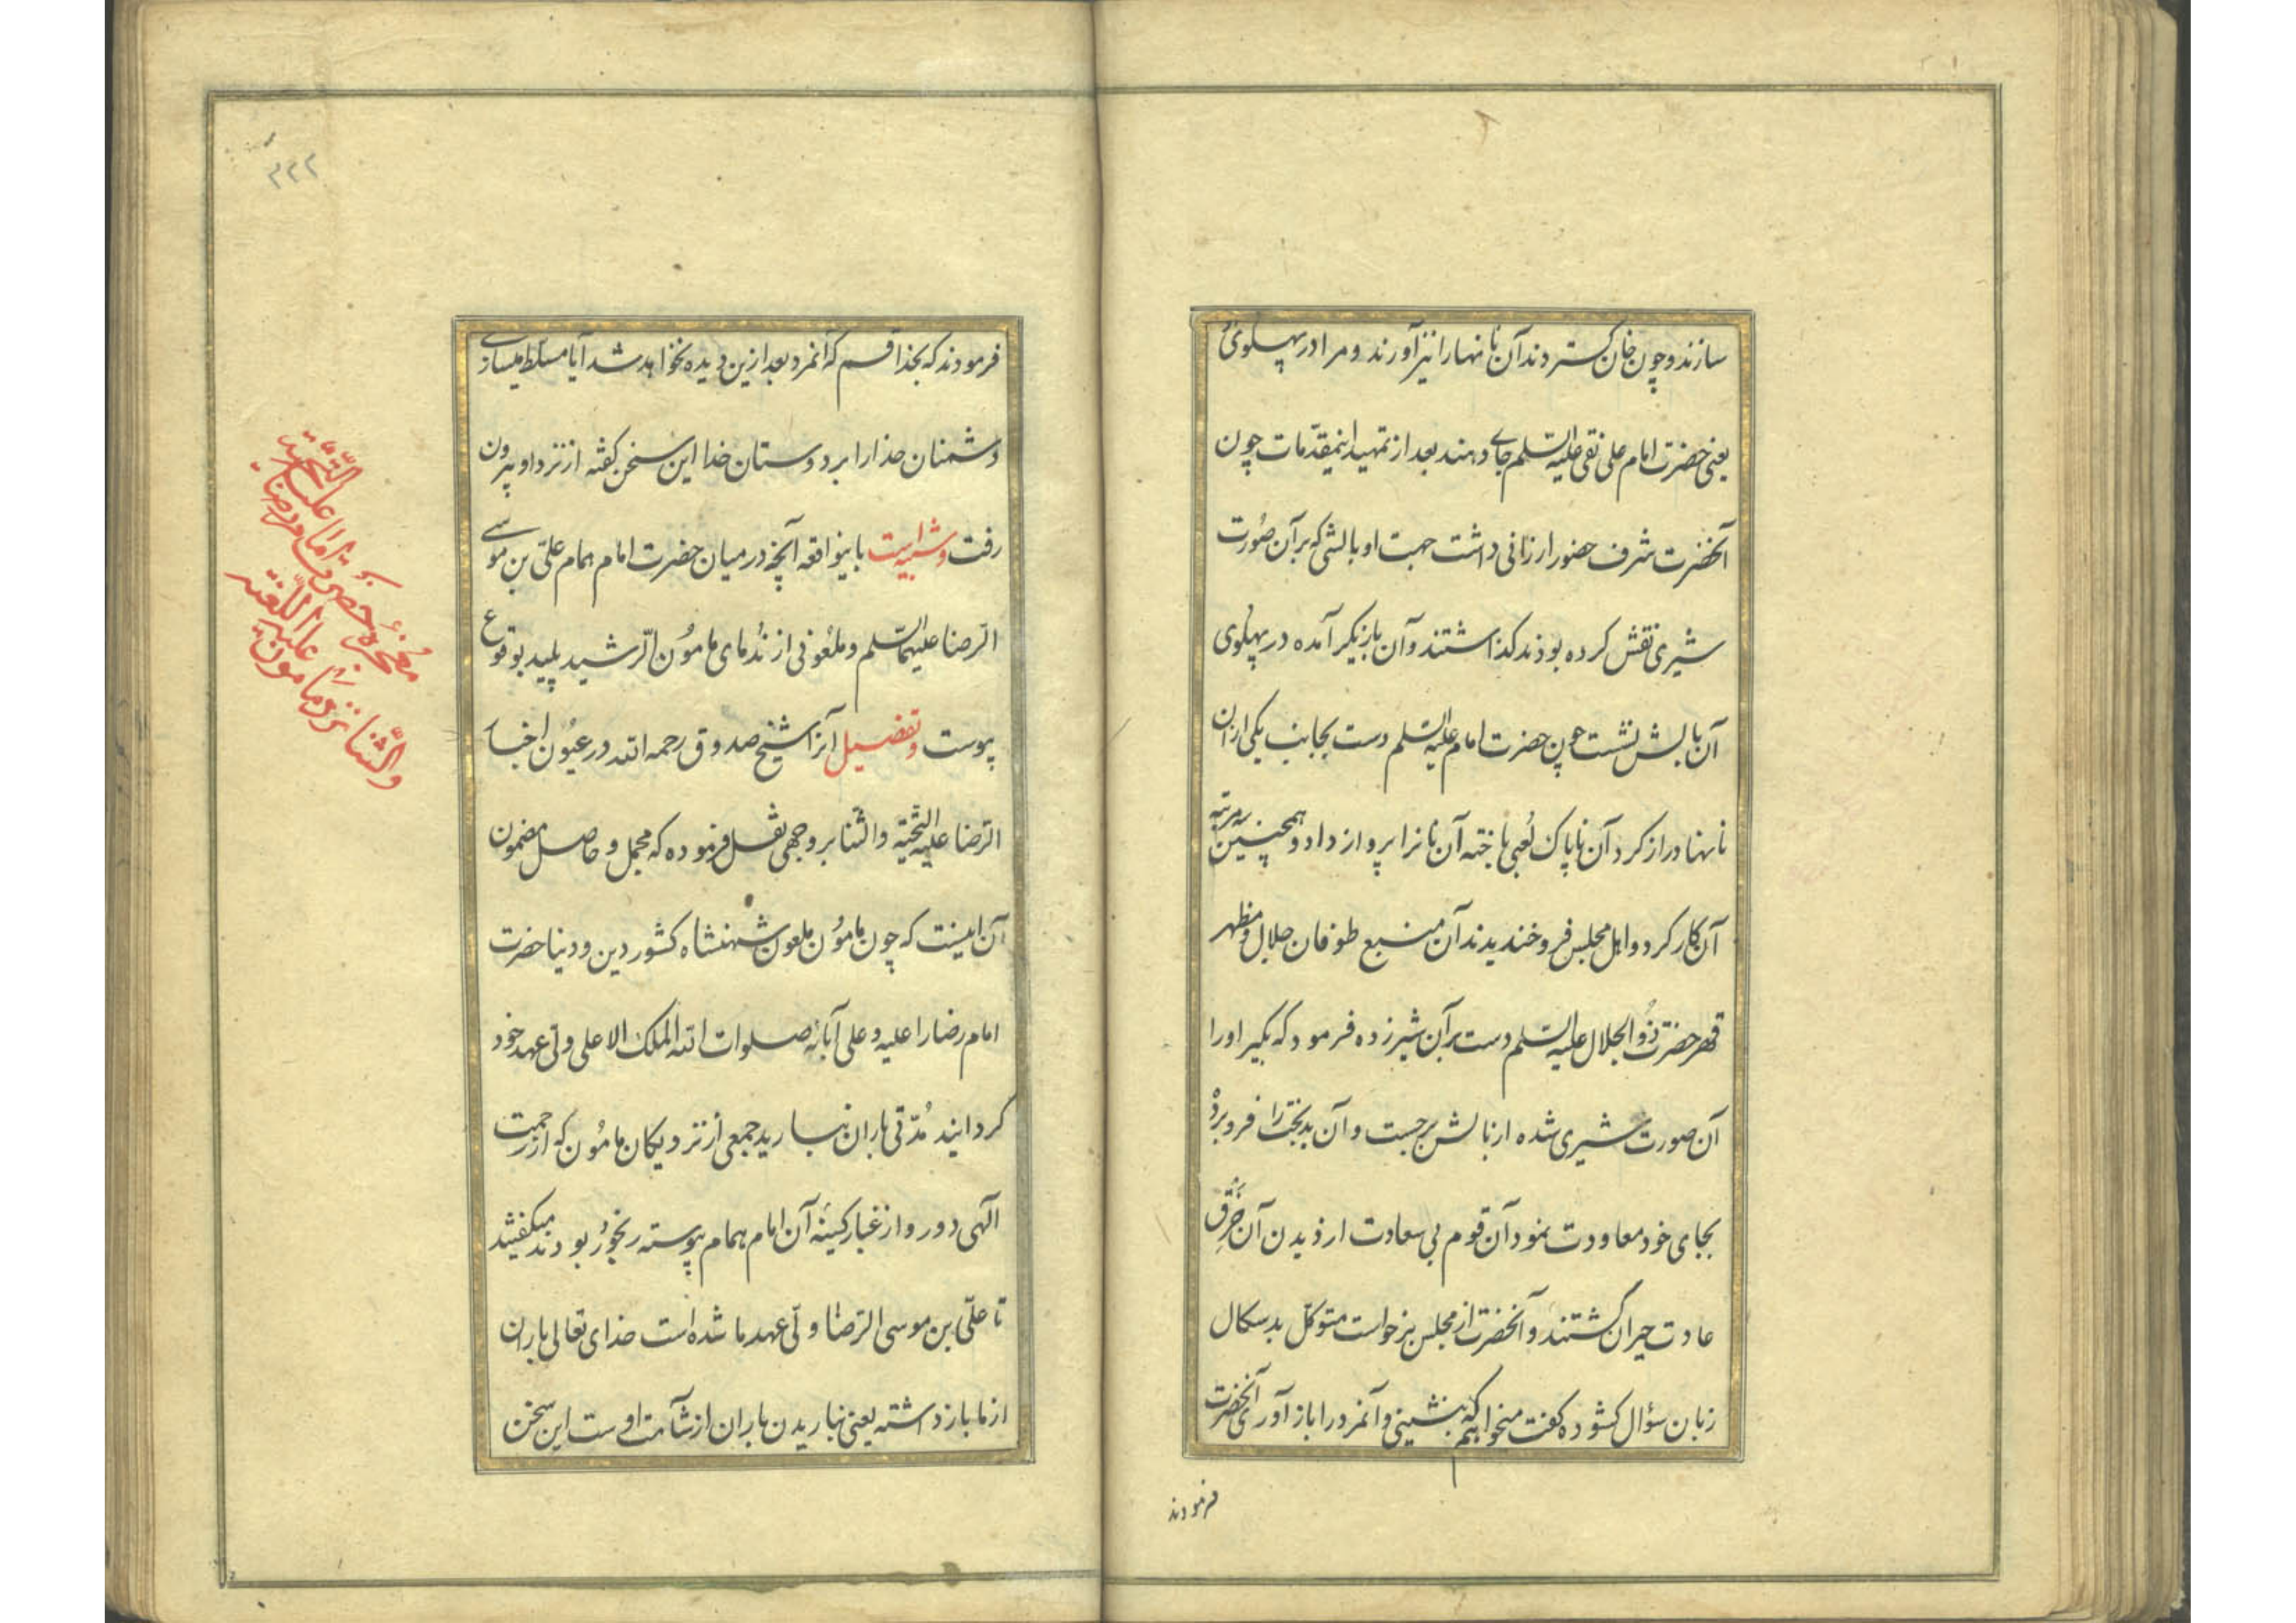 سازند و چون خان گستردند آن نانها را نیز آورند و مرا در پهلوی
یعنی حضرت امام علی نقی علیه السلم جای دهند بعد از تمهید اینمقدّمات چون
آنحضرت شرف حضور ارزانی داشت جهت او بالشی که بر آن صُورت
شیری نقش کرده بودند گذاشتند و آن بازیگر آمده در پهلوی
آن بالش نشست چون حضرت امام علیه السلم دست بجانب یکی از آن
نانها دراز کرد آن ناپاک لُعبی باخته آن نانرا پرواز داد و همچنین سه مرتبه
آن کار کرد و اهل مجلس فرو خندیدند آن منبع طوفان جلال و مظهر
قهر حضرت ذُو الجلال علیه السلم دست بر آن شیر زده فرمود که بگیر او را
آن صورت شیری شده از بالش برجست و آن بدبخت را فرو برده
بجای خود معاودت نمود آن قوم بی سعادت از دیدن آن خَرقِ
عادت حیران گشتند و آنحضرت از مجلس برخواست متوکّل بدسکال
زبان سؤال کشوده کفت میخواهم که بنشینی و آنمرد را باز آوری آنحضرت
فرمودند
۳۲۲
فرمودند که بخدا قسم که آنمرد بعد ازین دیده نخواهد شد آیا مسلّط میسازی
دشمنان خدا را بر دوستان خدا این سخن کفته از نزد او بیرون
رفت و شبیه است باینواقعه آنچه در میان حضرت امام همام علیّ بن موسی
الرّضا علیهما السّلم و ملعُونی از نُدمای مامُون الرّشید پلید بوقوع
پیوست و تفضیل آنرا شیخ صدوق رحمه الله در عیُون اخبار
الرّضا علیه التحّیّة والثنا بر وجهی نقل فرموده که مجمل و حاصل مضمون
آن اینست که چون مامُون ملعون شهنشاه کشور دین و دنیا حضرت
امام رضا را علیه و علی آبائه صلوات الله الملک الاعلی ولیّ عهد خود
کردانید مُدّتی باران نبارید جمعی از نزدیکان مامُون که از رحمت
الهی دور و از غبار کینهٔ آن امام همام پیوسته رنجُور بودند میکفتند
تا علیّ بن موسی الرّضا ولّی عهد ما شده است خدای تعالی باران
از ما باز داشته یعنی نباریدن باران از شآمت اوست این سخن
معُجزه حضرُت امام رضا علیه التَّحیَّة
والَّثنا نزد مامون علیه اللَّعنه